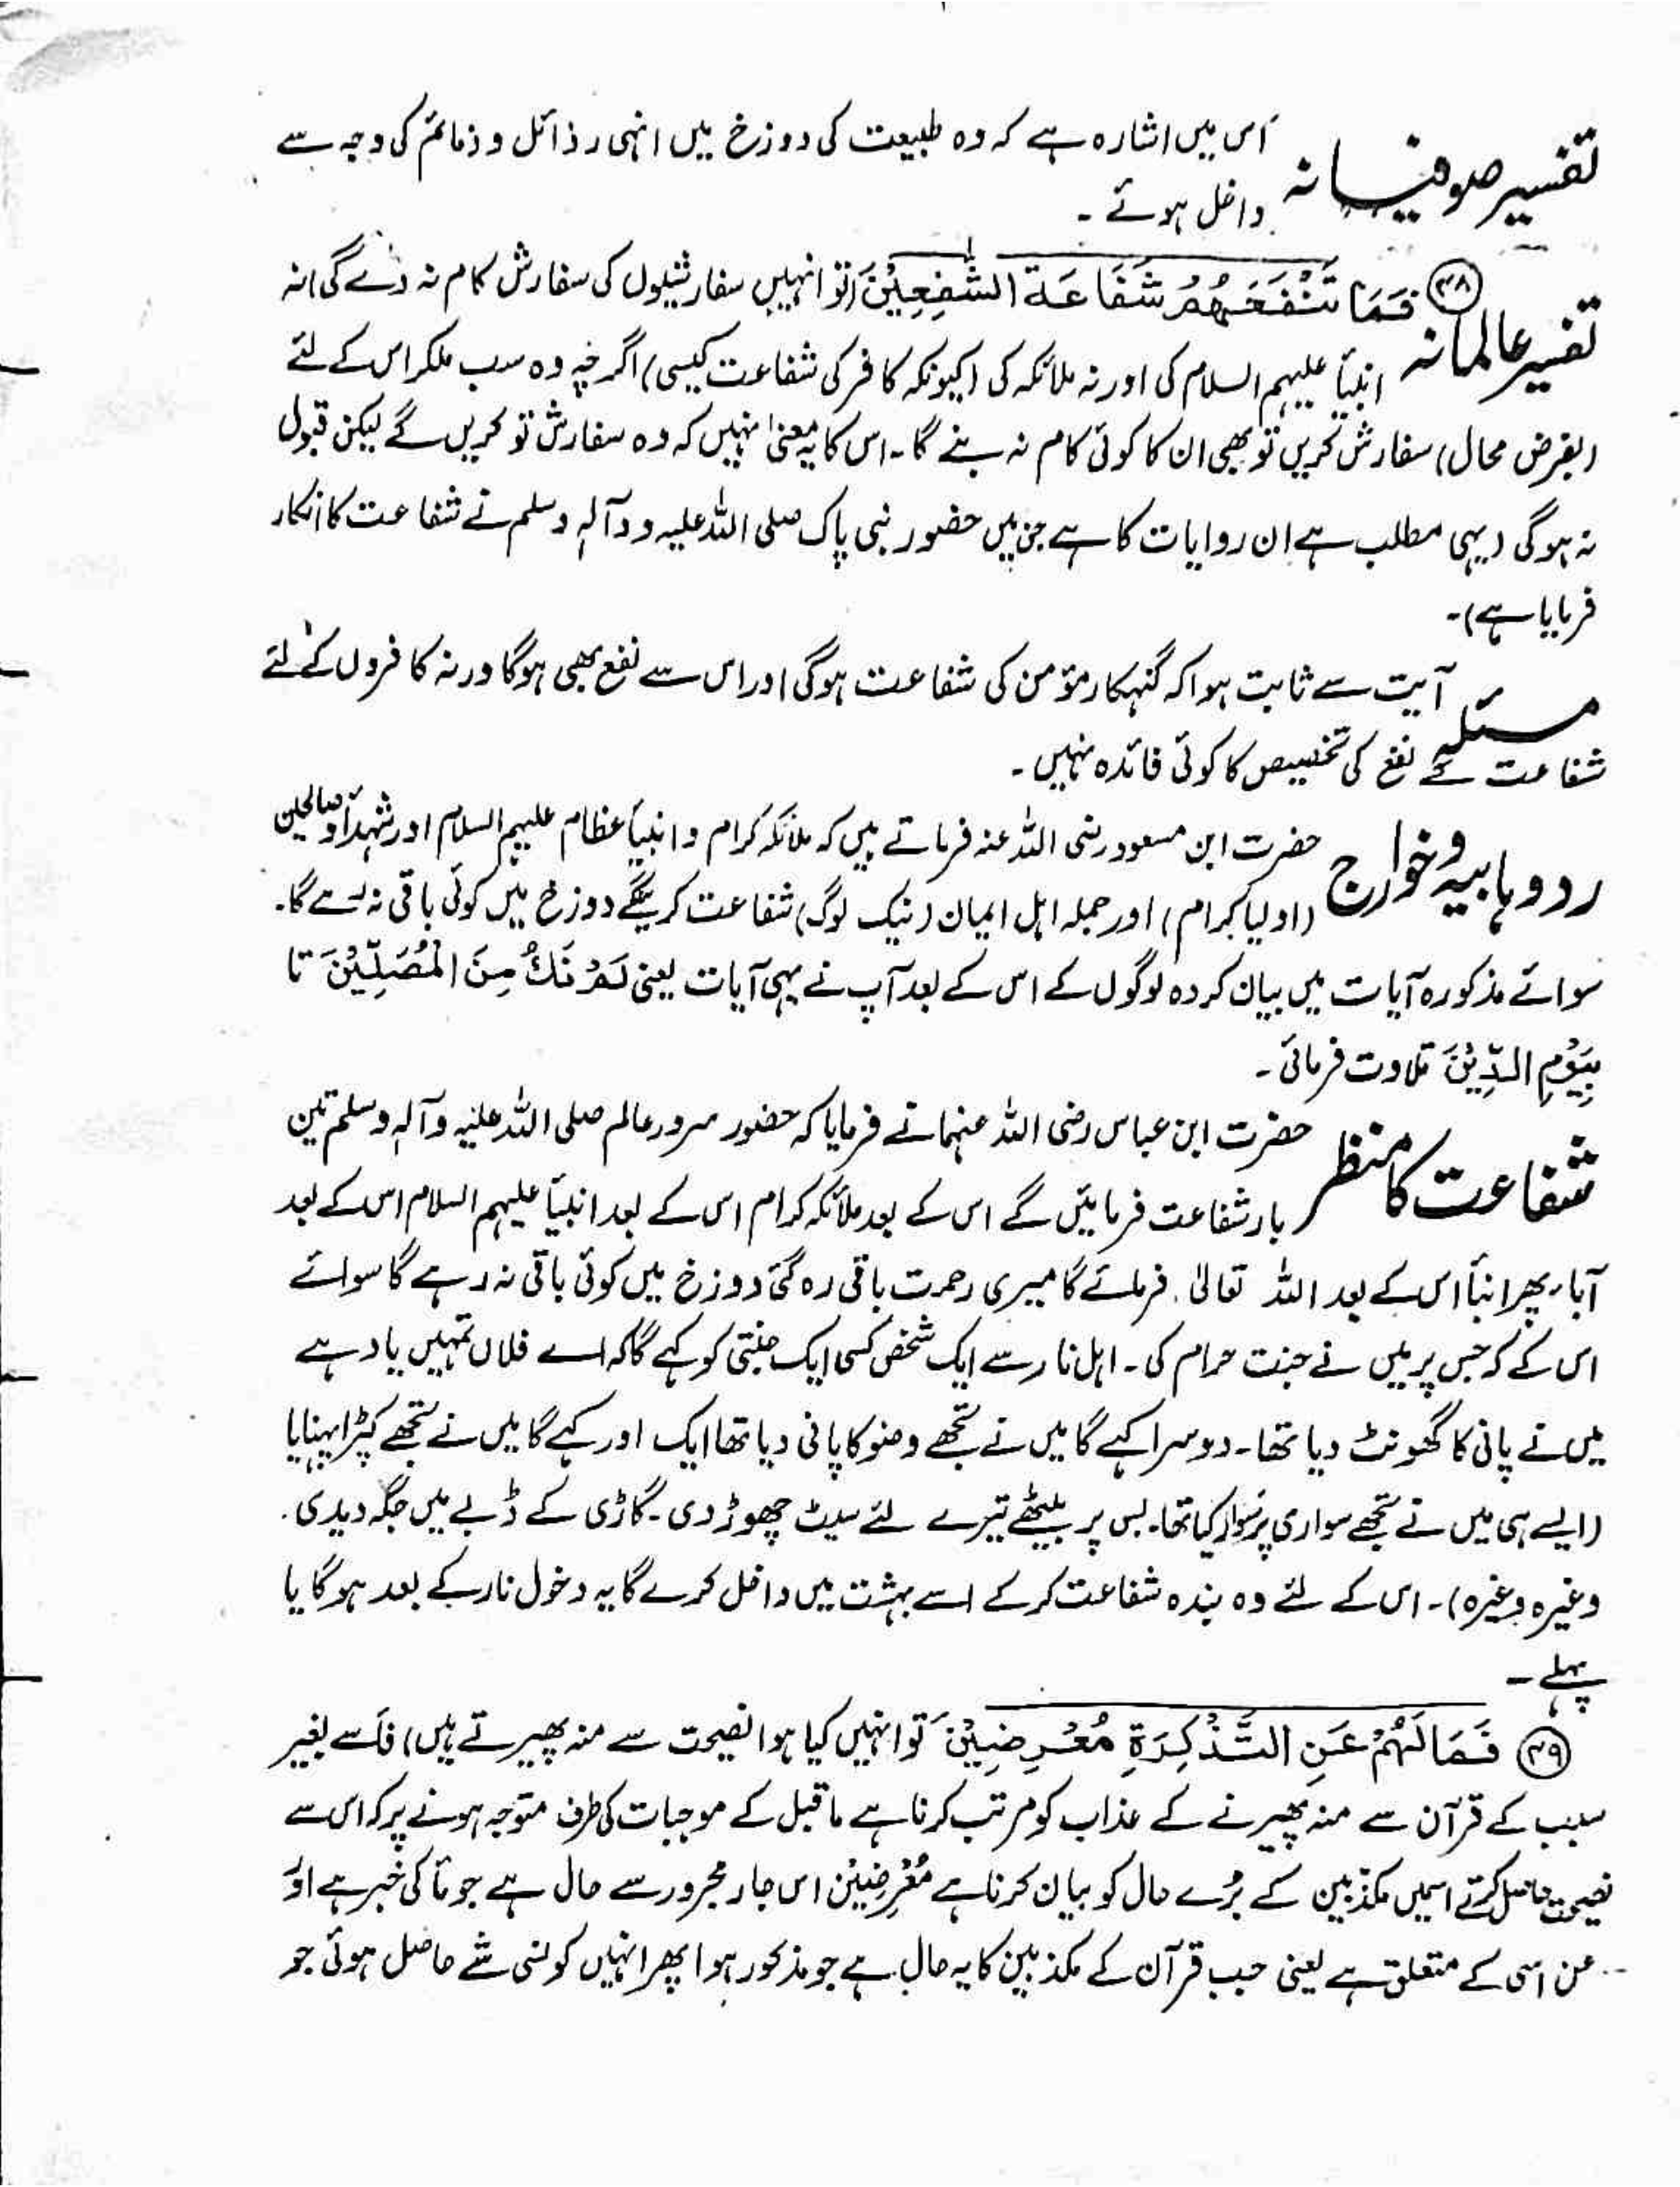 تفسیر صوفیانہ اس میں اشارہ ہے کہ وہ طبیعت کی دوزخ میں انہی رذائل و ذمائم کی وجہ سے
داخل ہوئے ۔
تفسیر عالمانہ (۴۸) فَمَا تَنْفَعُهُمْ شَفَاعَةُ الشّٰفِعِیْنَ (تو انہیں سفارشیوں کی سفارش کام نہ دے گی) نہ
انبیأ علیہم السلام کی اور نہ ملائکہ کی (کیونکہ کافر کی شفاعت کیسی) اگرچہ وہ سب ملکر اس کے لئے
(بفرض محال) سفارش کریں تو بھی ان کا کوئی کام نہ بنے گا۔ اس کا یہ معنیٰ نہیں کہ وہ سفارش تو کریں گے لیکن قبول
نہ ہو گی (یہی مطلب ہے ان روایات کا ہے جن میں حضور نبی پاک صلی اللہ علیہ و د آلہٖ وسلم نے شفاعت کا انکار
فرمایا ہے)۔
مسئلہ آیت سے ثابت ہوا کہ گنہکار مؤمن کی شفاعت ہوگی اور اس سے نفع بھی ہوگا ورنہ کافروں کے لئے
شفاعت کے نفع کی تخصیص کا کوئی فائدہ نہیں ۔
رد وہابیہ و خوارج حضرت ابن مسعود رضی اللہ عنہ فرماتے ہیں کہ ملائکہ کرام و انبیأ عظام علیہم السلام اور شہدأ و صالحین
(اولیا کرام) اور جملہ اہل ایمان (نیک لوگ) شفاعت کرینگے دوزخ میں کوئی باقی نہ رہے گا۔
سوائے مذکورہ آیات میں بیان کردہ لوگوں کے اس کے بعد آپ نے یہی آیات یعنی لَمْ نَكُ مِنَ الْمُصَلِّیْنَ تا
بِیَوْمِ الدِّیْنَ تلاوت فرمائی ۔
شفاعت کا منظر حضرت ابن عباس رضی اللہ عنہما نے فرمایا کہ حضور سرور عالم صلی اللہ علیہ وآلہ وسلم تین
بار شفاعت فرمائیں گے اس کے بعد ملائکہ کرام اس کے بعد انبیأ علیہم السلام اس کے بعد
آبا، پھر ابنأ اس کے بعد اللہ تعالیٰ فرمائے گا میری رحمت باقی رہ گئی دوزخ میں کوئی باقی نہ رہے گا سوائے
اس کے کہ جس پر میں نے جنت حرام کی ۔ اہل نار سے ایک شخص کسی ایک جنتی کو کہے گا کہ اے فلاں تمہیں یاد ہے
میں نے پانی کا گھونٹ دیا تھا ۔ دوسرا کہے گا میں نے تجھے وضو کا پانی دیا تھا ایک اور کہے گا میں نے تجھے کپڑا پہنایا
(ایسے ہی میں نے تجھے سواری پر سوار کیا تھا۔ بس پر بیٹھے تیرے لئے سیٹ چھوڑ دی ۔ گاڑی کے ڈبے میں جگہ دیدی ۔
وغیرہ وغیرہ) ۔ اس کے لئے وہ بندہ شفاعت کر کے اسے بہشت میں داخل کرے گا یہ دخول نار کے بعد ہو گا یا
پہلے ۔
(۴۹) فَمَا لَهُمْ عَنِ التَّذْكِرَةِ مُعْرِضِیْنَ تو انہیں کیا ہوا نصیحت سے منہ پھیرتے ہیں) فأ سے بغیر
سبب کے قرآن سے منہ پھیرنے کے عذاب کو مرتب کرنا ہے ماقبل کے موجبات کی طرف متوجہ ہونے پر کہ اس سے
نصیحت حاصل کرتے اسمیں مکذبین کے بُرے حال کو بیان کرنا ہے مُعْرِضِیْن اس جار مجرور سے حال ہے جو مَا کی خبر ہے اور
عن اسی کے متعلق ہے یعنی جب قرآن کے مکذبین کا یہ حال ہے جو مذکور ہوا پھر انہیں کونسی شے حاصل ہوئی جو